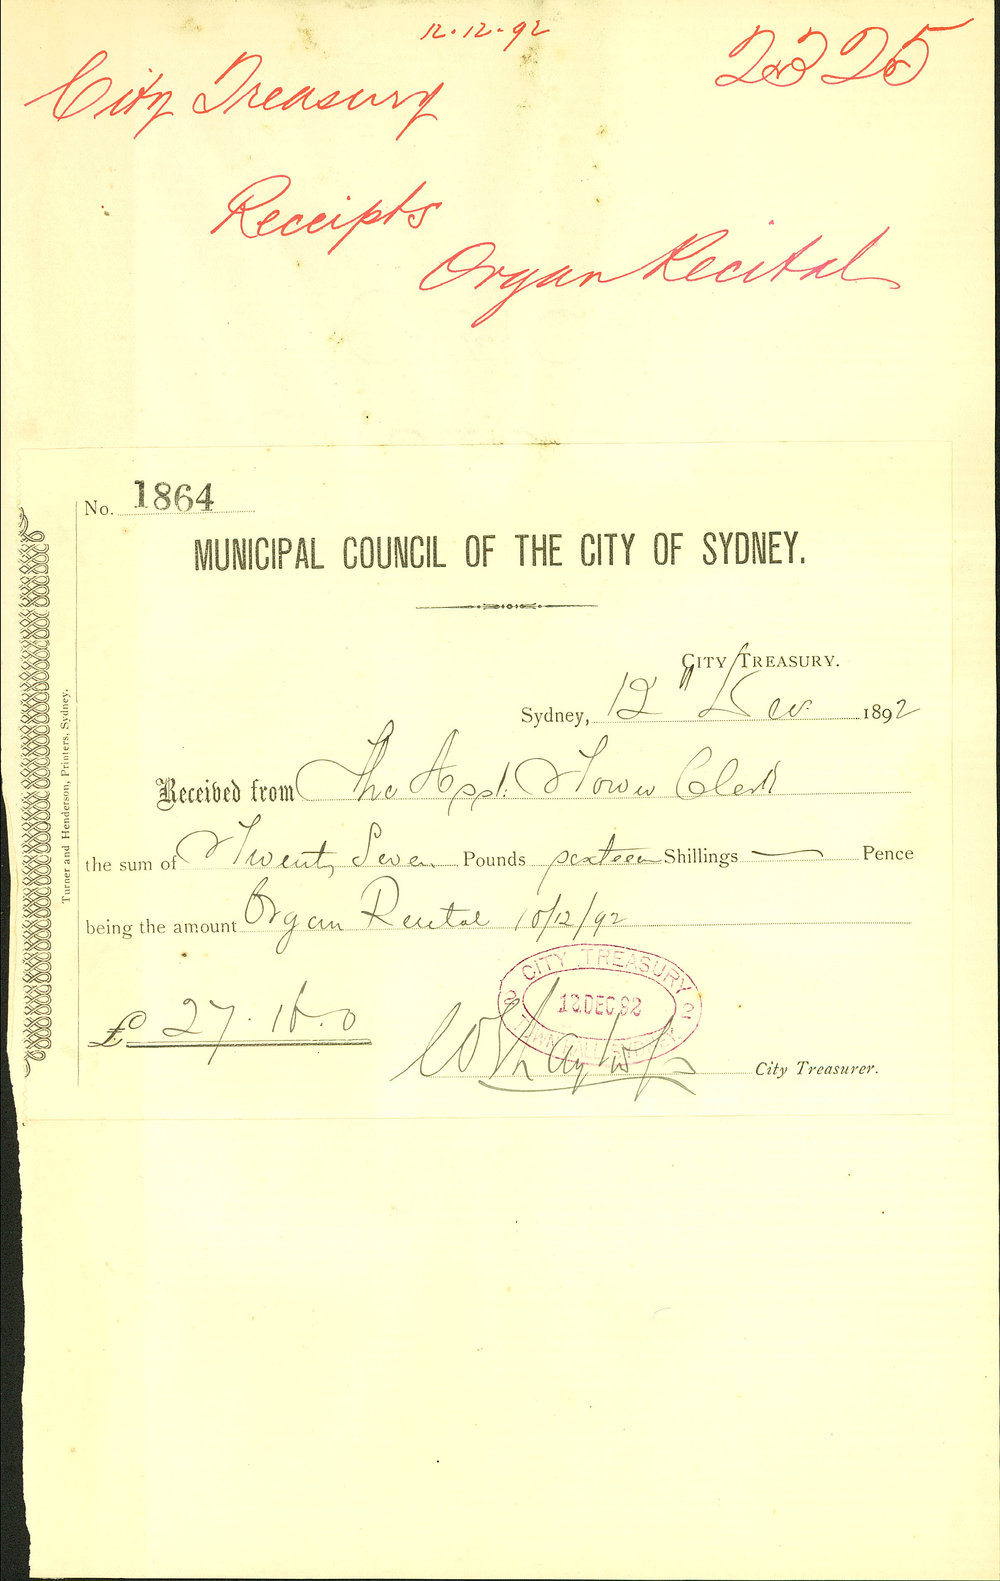 12.12.92
2325
City Treasury
Receipts
Organ Recital
No. 1864
MUNICIPAL COUNCIL OF THE CITY OF SYDNEY.
CITY TREASURY.
Sydney, 12" Dec. 1892
Received from The Asst. Town Clerk
the sum of Twenty Seven Pounds sixteen Shillings — Pence
being the amount Organ Recital 10/12/92
CITY TREASURY
12 DEC 92
TOWN HALL SYDNEY
£ 27.16.0
City Treasurer.
Turner and Henderson, Printers, Sydney.